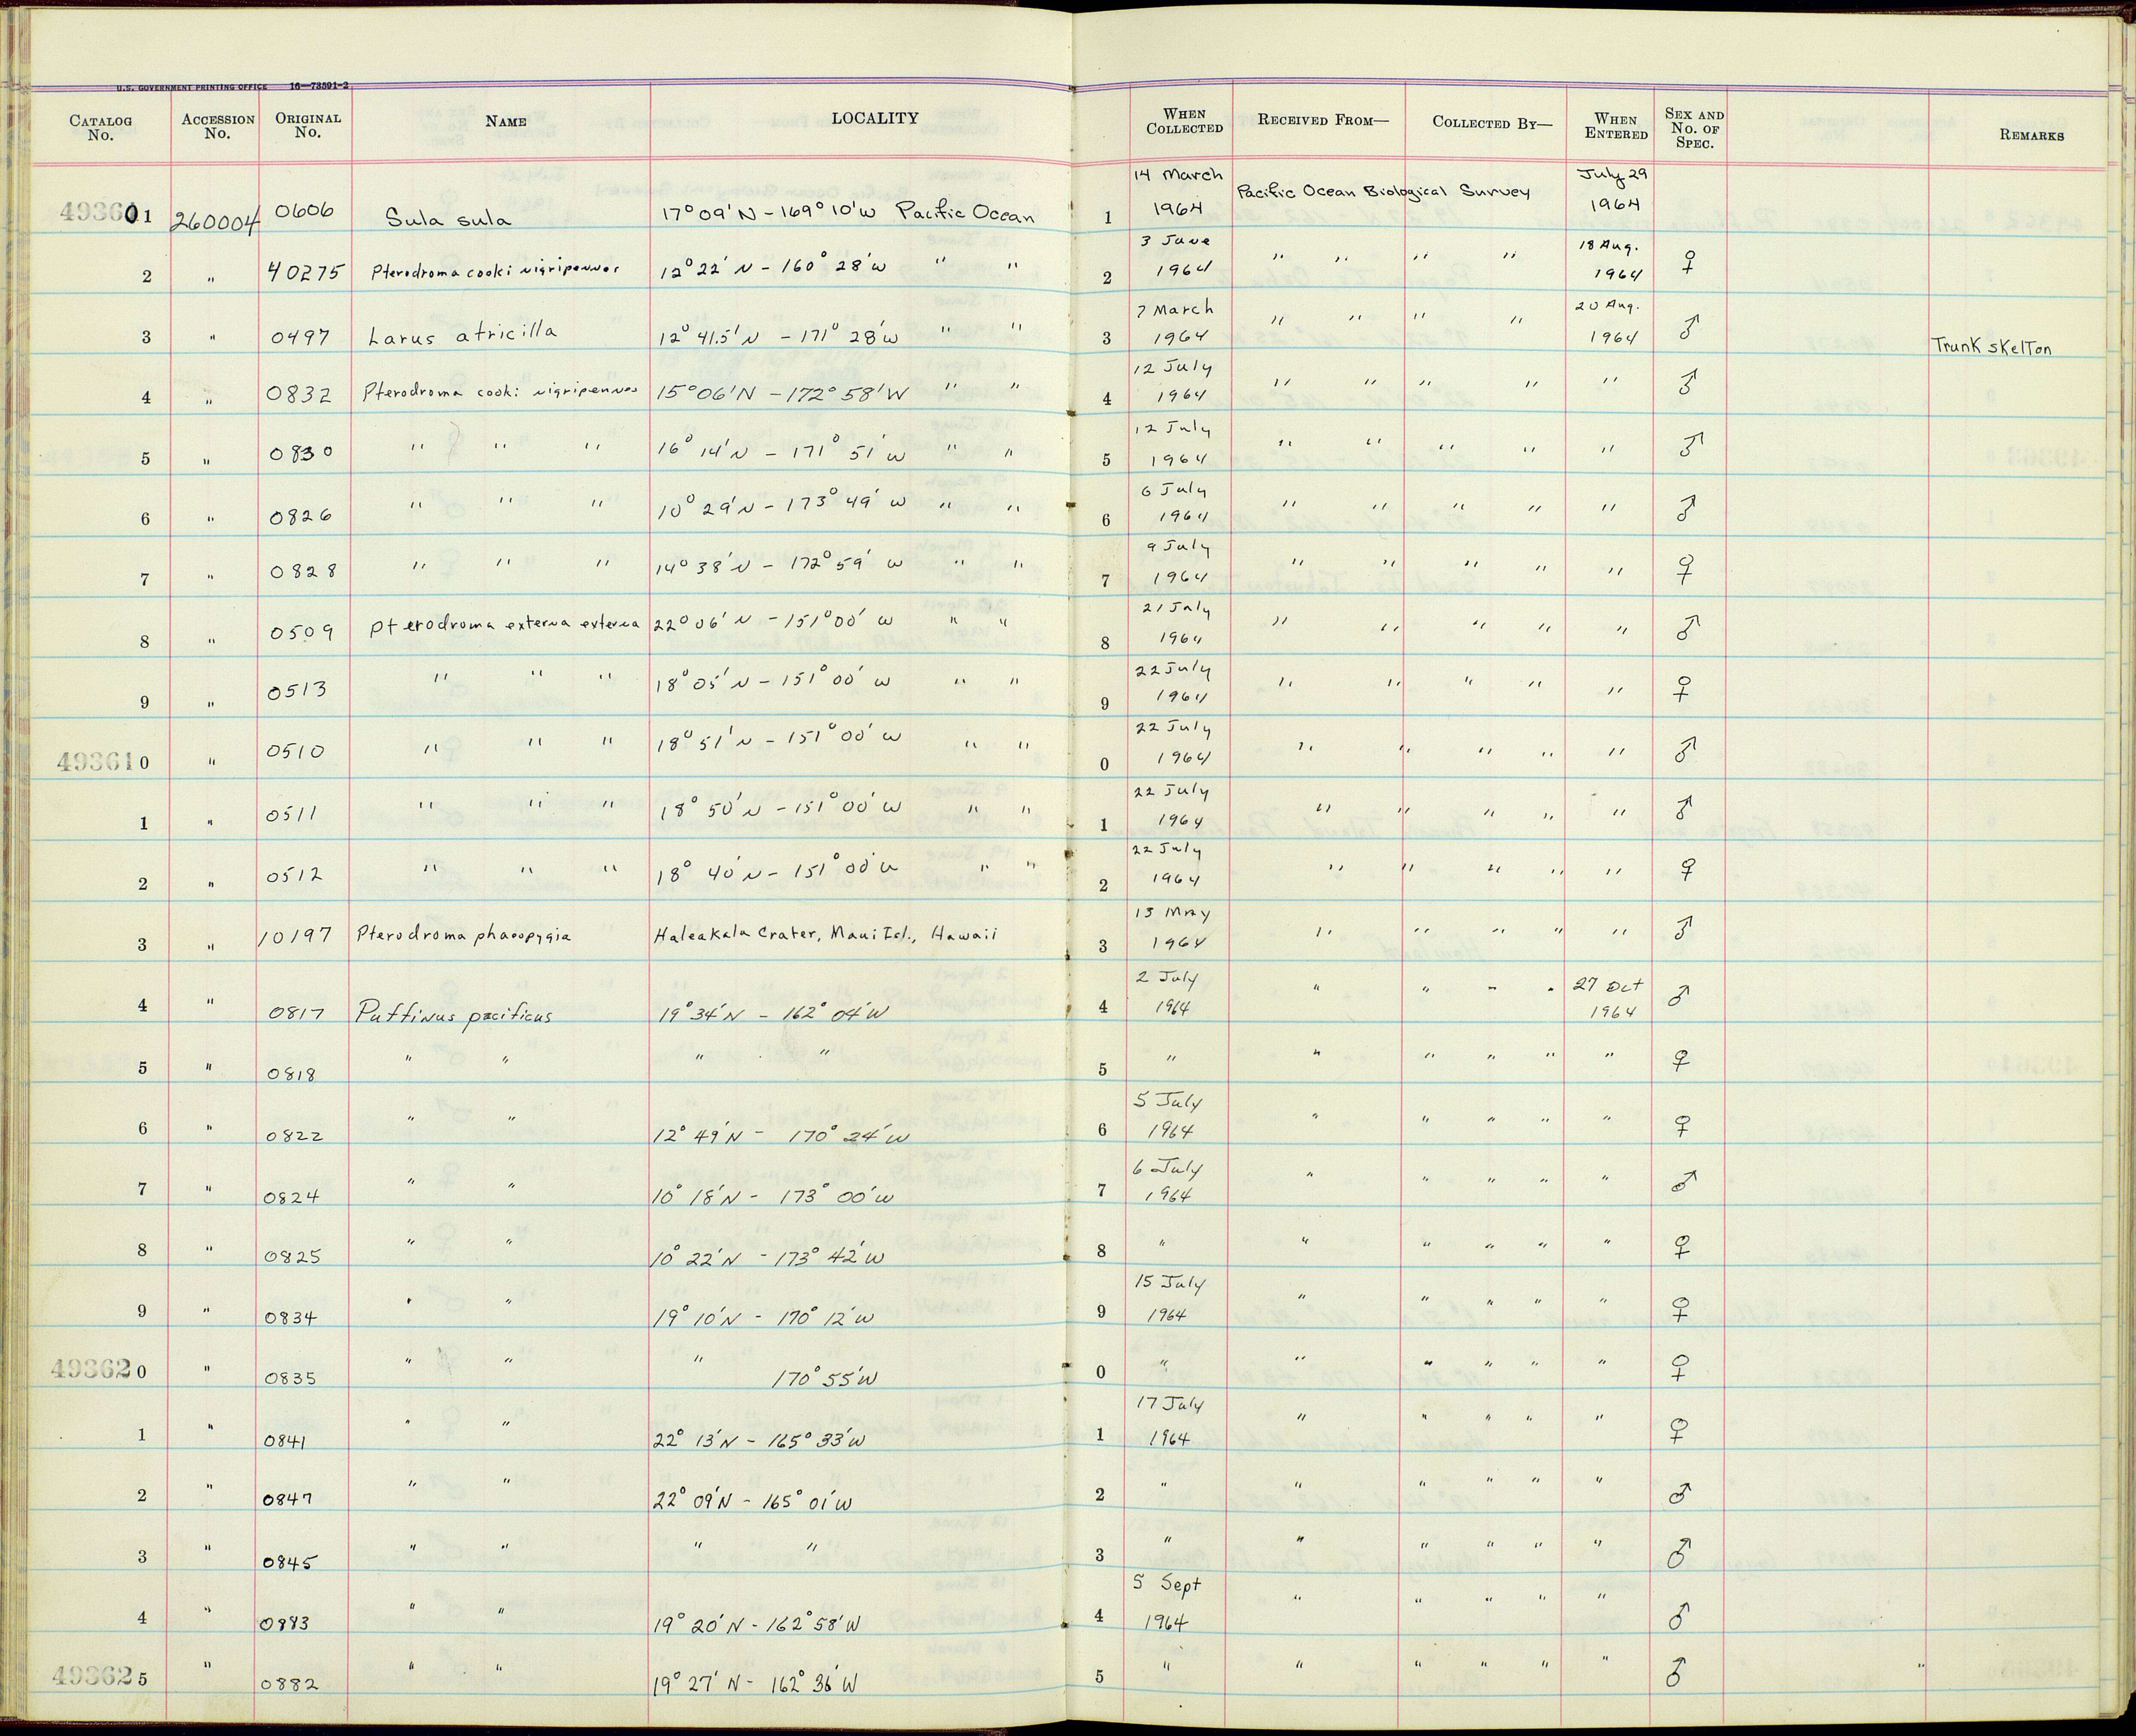 U.S. GOVERNMENT PRINTING OFFICE 16—73591-2
CATALOG No. ACCESSION No. ORIGINAL No. NAME LOCALITY WHEN COLLECTED RECEIVED FROM— COLLECTED BY— WHEN ENTERED SEX AND No. OF SPEC. REMARKS
493601 260004 0606 Sula sula 17°09'N - 169°10'W Pacific Ocean 1 14 March 1964 Pacific Ocean Biological Survey July 29 1964
2 " 40275 Pterodroma cooki nigripennis 12°22'N - 160°28'W " " 2 3 June 1964 " " " " 18 Aug. 1964 ♀
3 " 0497 Larus atricilla 12°41.5'N - 171°28'W " " 3 7 March 1964 " " " " 20 Aug. 1964 ♂ Trunk skelton
4 " 0832 Pterodroma cooki nigripennis 15°06'N - 172°58'W " " 4 12 July 1964 " " " " " ♂
5 " 0830 " " " 16°14'N - 171°51'W " " 5 12 July 1964 " " " " " ♂
6 " 0826 " " " 10°29'N - 173°49'W " " 6 6 July 1964 " " " " " ♂
7 " 0828 " " " 14°38'N - 172°59'W " " 7 9 July 1964 " " " " " ♀
8 " 0509 Pterodroma externa externa 22°06'N - 151°00'W " " 8 21 July 1964 " " " " " ♂
9 " 0513 " " " 18°05'N - 151°00'W " " 9 22 July 1964 " " " " " ♀
493610 " 0510 " " " 18°51'N - 151°00'W " " 0 22 July 1964 " " " " " ♂
1 " 0511 " " " 18°50'N - 151°00'W " " 1 22 July 1964 " " " " " ♂
2 " 0512 " " " 18°40'N - 151°00'W " " 2 22 July 1964 " " " " " ♀
3 " 10197 Pterodroma phaeopygia Haleakala Crater, Maui Isl., Hawaii 3 13 May 1964 " " " " " ♂
4 " 0817 Puffinus pacificus 19°34'N - 162°04'W 4 2 July 1964 " " " " 27 Oct 1964 ♂
5 " 0818 " " " " 5 " " " " " " ♀
6 " 0822 " " 12°49'N - 170°24'W 6 5 July 1964 " " " " " ♀
7 " 0824 " " 10°18'N - 173°00'W 7 6 July 1964 " " " " " ♂
8 " 0825 " " 10°22'N - 173°42'W 8 " " " " " " ♀
9 " 0834 " " 19°10'N - 170°12'W 9 15 July 1964 " " " " " ♀
493620 " 0835 " " " 170°55'W 0 " " " " " " ♀
1 " 0841 " " 22°13'N - 165°33'W 1 17 July 1964 " " " " " ♀
2 " 0847 " " 22°09'N - 165°01'W 2 " " " " " " ♂
3 " 0845 " " " " 3 " " " " " " ♂
4 " 0883 " " 19°20'N - 162°58'W 4 5 Sept 1964 " " " " " ♂
493625 " 0882 " " 19°27'N - 162°36'W 5 " " " " " " ♂ "